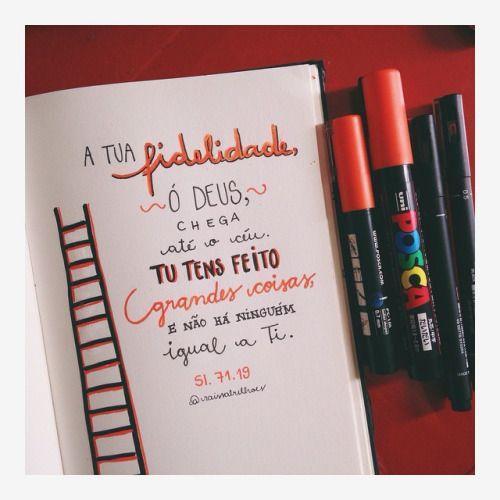 A TUA fidelidade,
Ó DEUS,
CHEGA
até o céu.
TU TENS FEITO
grandes coisas,
E NÃO HÁ NINGUÉM
igual a Ti.
Sl. 71.19
uni
POSCA
0.5